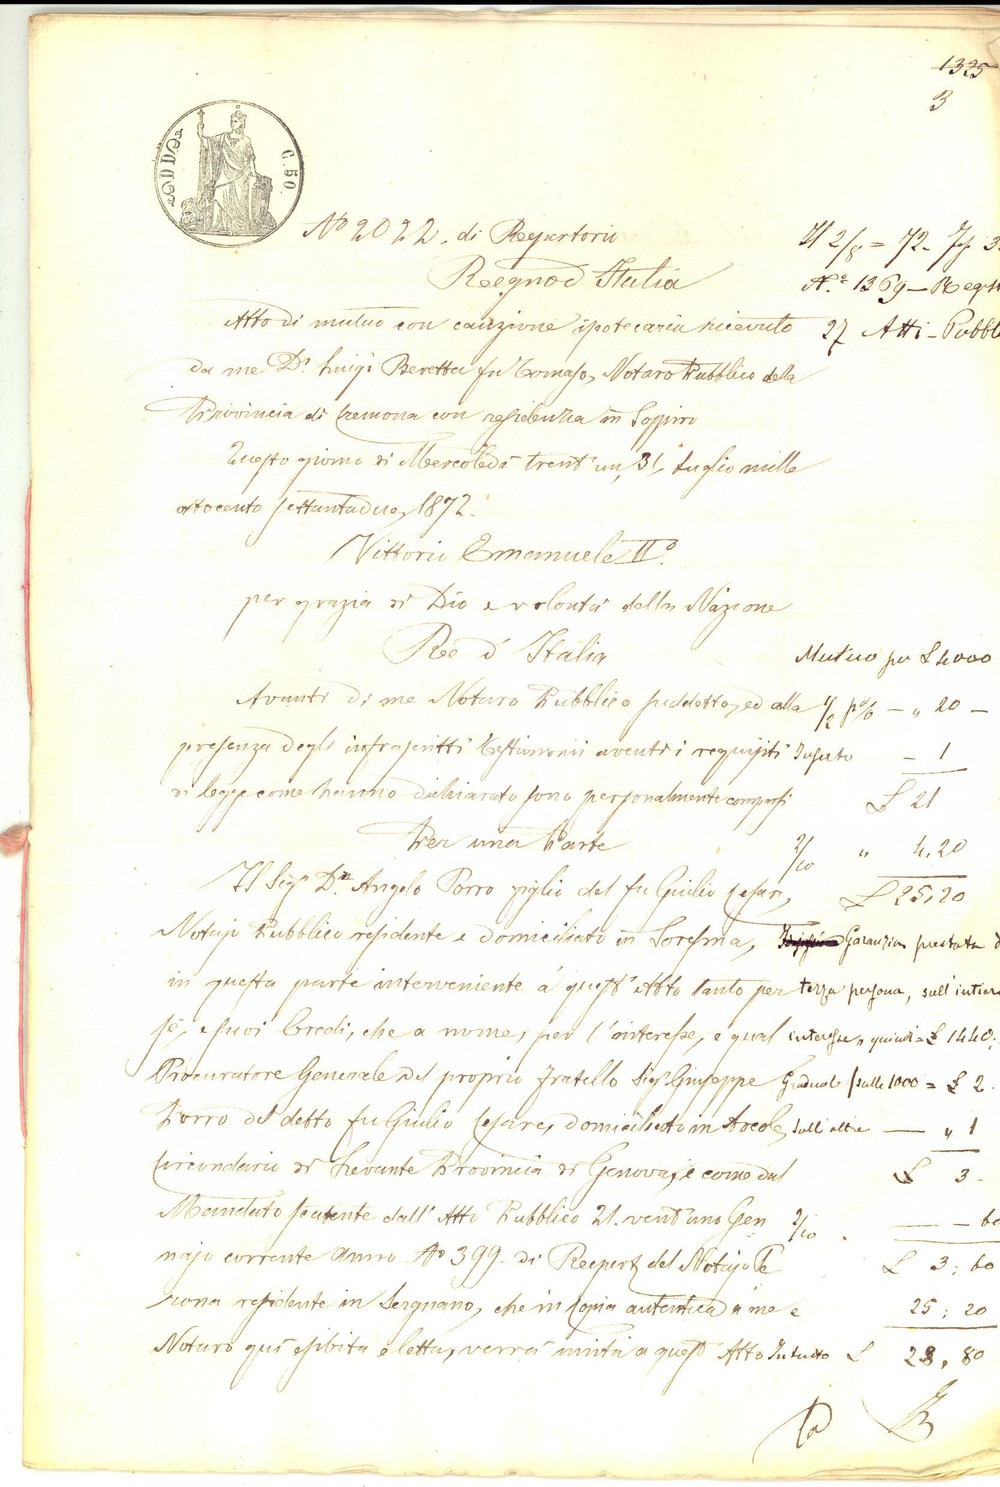 1325
3
C. 50.
N° 2022. di Repertorio
Regno d'Italia
Atto di mutuo con cauzione ipotecaria ricevuto
da me Dr. Luigi Beretta fu Tomaso, Notaro Pubblico della
Provincia di Cremona con residenza in
Questo giorno di Mercoledì trent'un, 31, Luglio mille
ottocento settantadue, 1872.
Vittorio Emanuele II°.
per grazia di Dio e volontà della Nazione
Re d'Italia
Avanti di me Notaro Pubblico suddetto, ed alla
presenza degli infrascritti Testimonii aventi i requisiti
di legge come hanno dichiarato sono personalmente comparsi
Per una Parte
Il Sigr. Dr. Angelo Porro figlio del fu Giulio Cesare,
Notajo Pubblico residente e domiciliato in Soresina,
in questa parte interveniente a quest'Atto tanto per
sè, e suoi Eredi, che a nome, per l'interesse, e qual
Procuratore Generale del proprio fratello Sigr. Giuseppe
Porro del detto fu Giulio Cesare, domiciliato in
Circondario di Levante Provincia di Genova, e come dal
Mandato scatente dall'Atto Pubblico 21. vent'uno Gen
najo corrente anno N° 399. di Repert. del Notajo
residente in Sergnano, che in copia autentica a me
Notaro quì esibita e letta, verrà unita a quest'Atto
Il 2/8 = 72
N.° 1369 — Regist
27 Atti - Pubbl
Mutuo per £ 4000
1/2 p% — „ 20 —
Inserto — 1
£ 21
2/10 „ 4,20
£ 25,20
Garanzia prestata d
terza persona, sull'intier
interesse, quindi = £ 1440;
Graduale sulle 1000 = £ 2.
Sull'altre — „ 1
£ 3.
2/10 . — — 60
£ 3; 60
25; 20
In tutto £ 28, 80